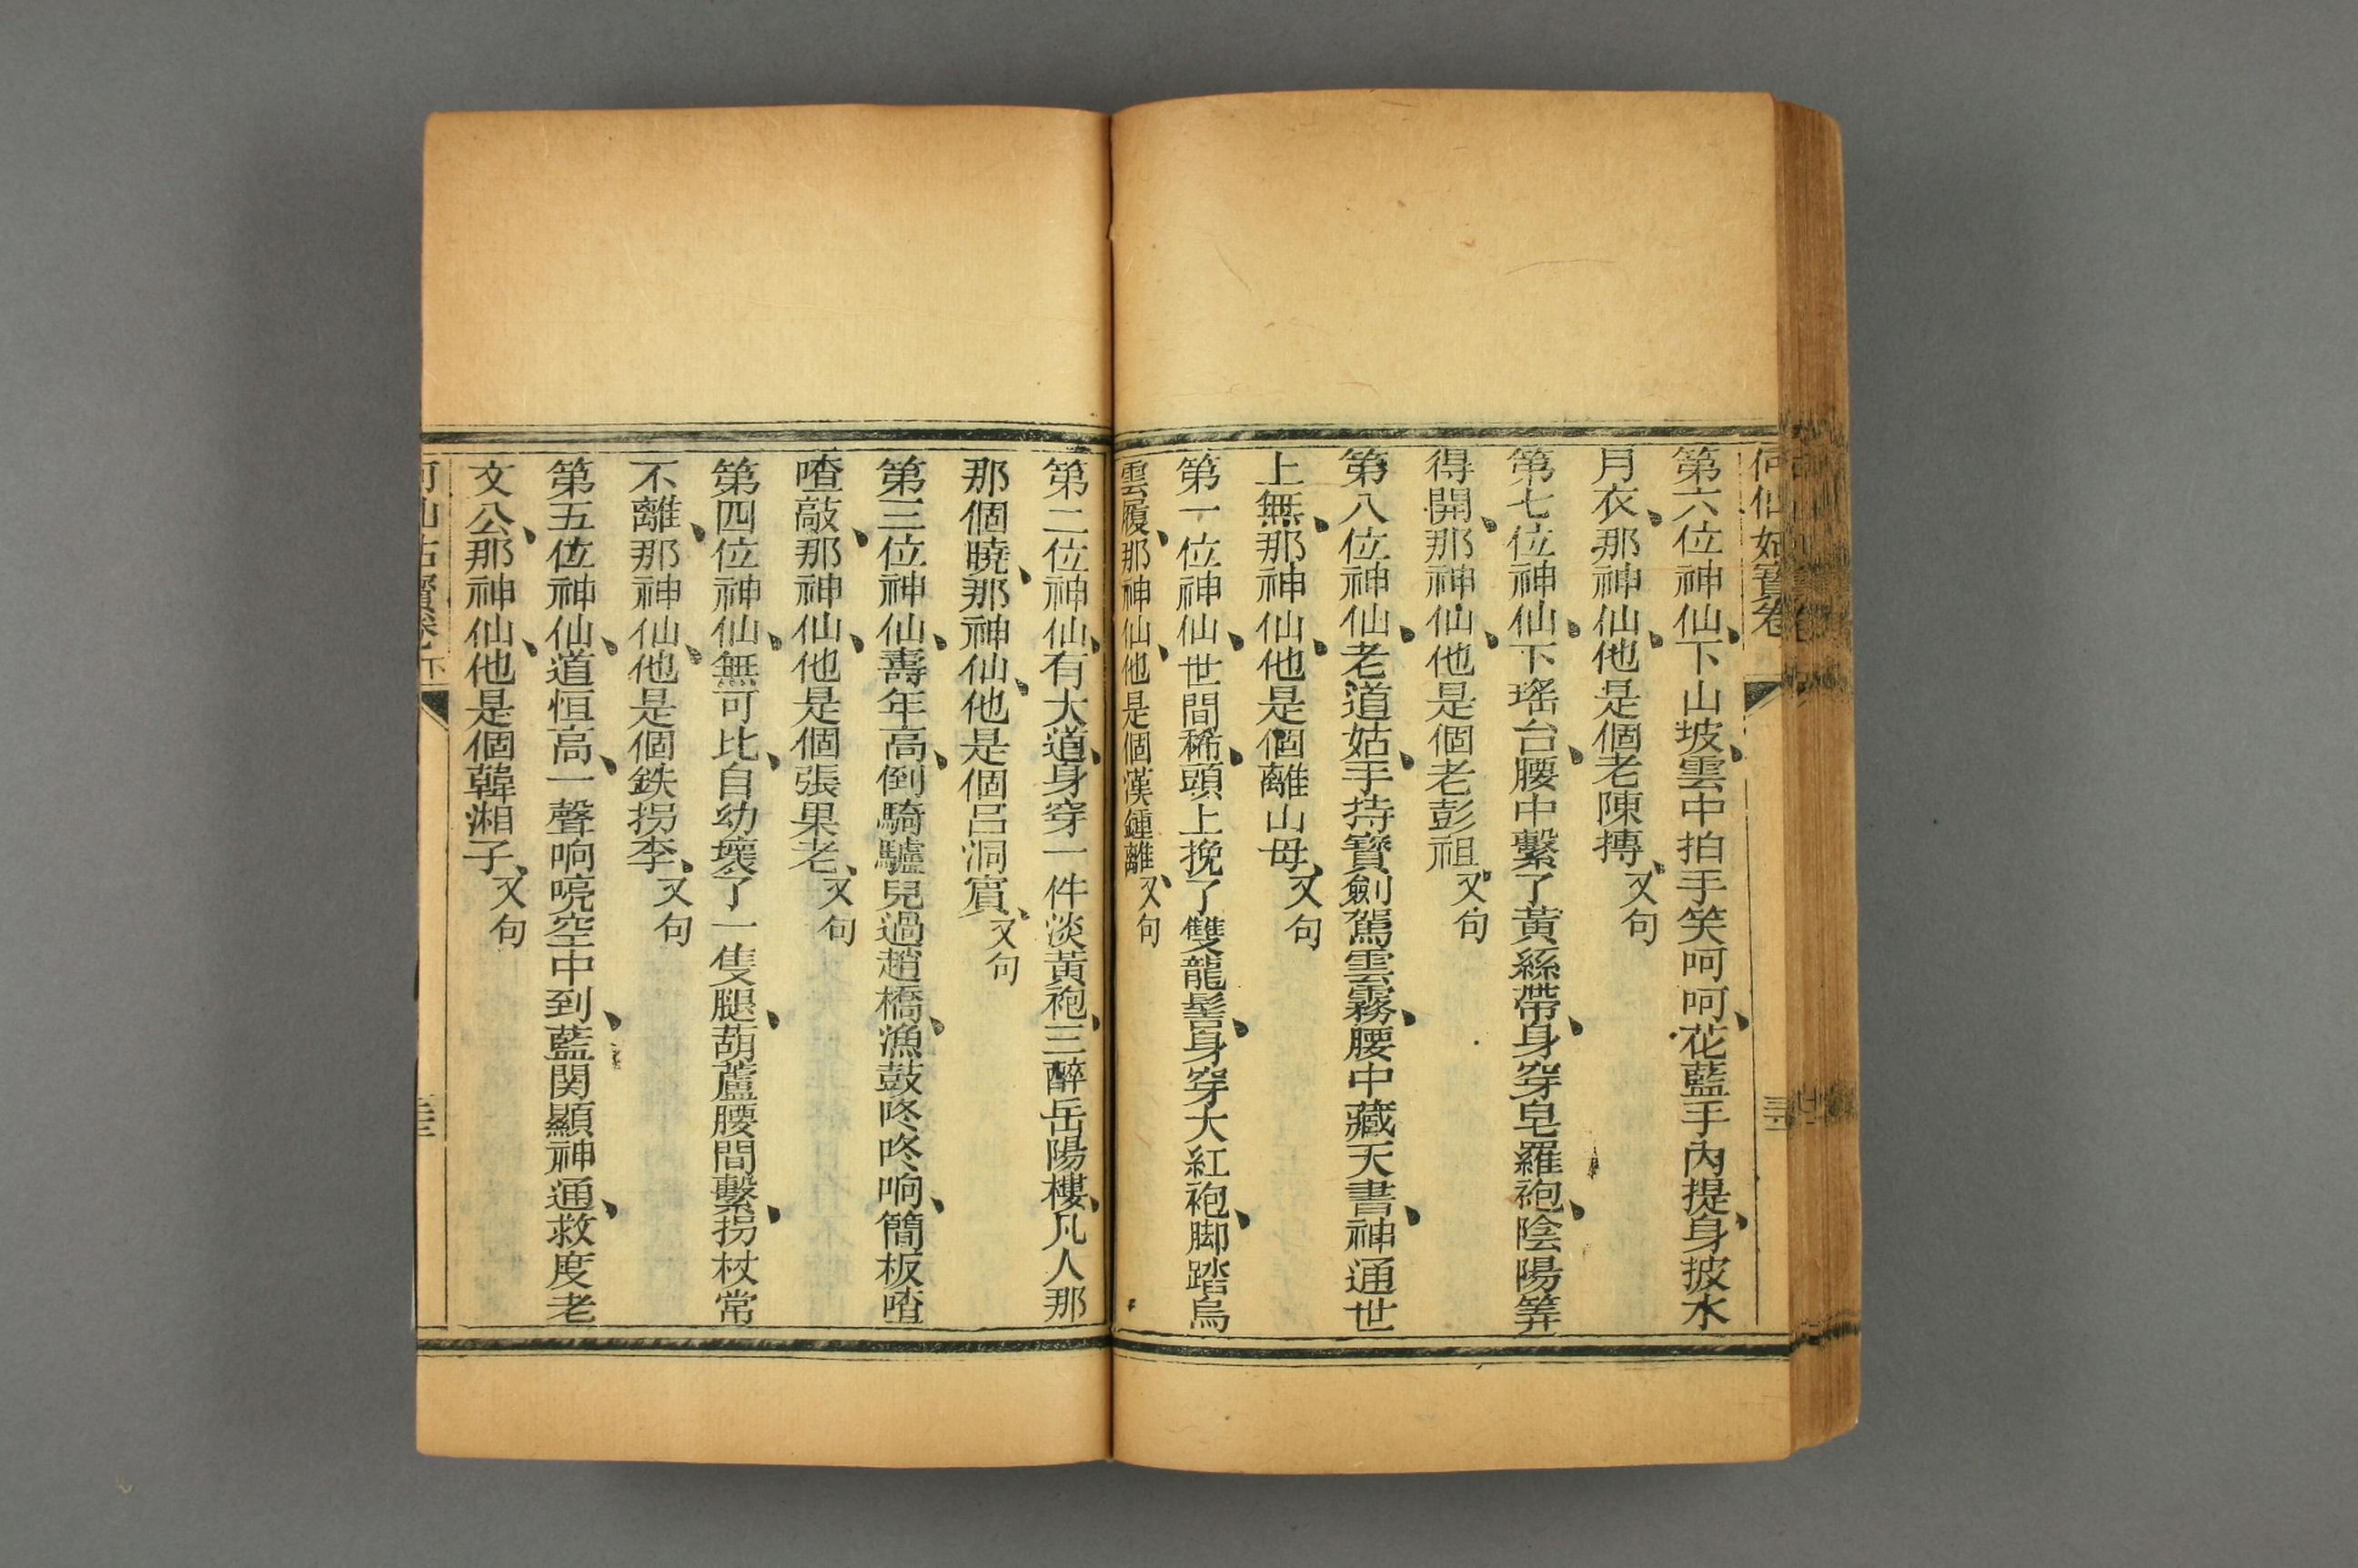 何仙姑寶卷
第六位神仙、下山坡、雲中拍手笑呵呵、花藍手內提、身披水
月衣、那神仙、他是個老陳摶、又句
第七位神仙、下瑤台、腰中繫了黃絲帶、身穿皂羅袍、陰陽筭
得開、那神仙、他是個老彭祖、又句
第八位神仙、老道姑、手持寶劍駕雲霧、腰中藏天書、神通世
上無、那神仙、他是個離山母、又句
第一位神仙、世間稀、頭上挽了雙龍髻、身穿大紅袍、脚踏烏
雲履、那神仙、他是個漢鍾離、又句
第二位神仙、有大道、身穿一件淡黃袍、三醉岳陽樓、凡人那
那個曉、那神仙、他是個呂洞賓、又句
第三位神仙、壽年高、倒騎驢兒過趙橋、漁鼓咚咚响、簡板喳
喳敲、那神仙、他是個張果老、又句
第四位神仙、無可比、自幼壞了一隻腿、葫蘆腰間繫、拐杖常
不離、那神仙、他是個鉄拐李、又句
第五位神仙、道恒高、一聲响喨空中到、藍関顯神通、救度老
文公、那神仙、他是個韓湘子、又句
何仙姑寶卷下